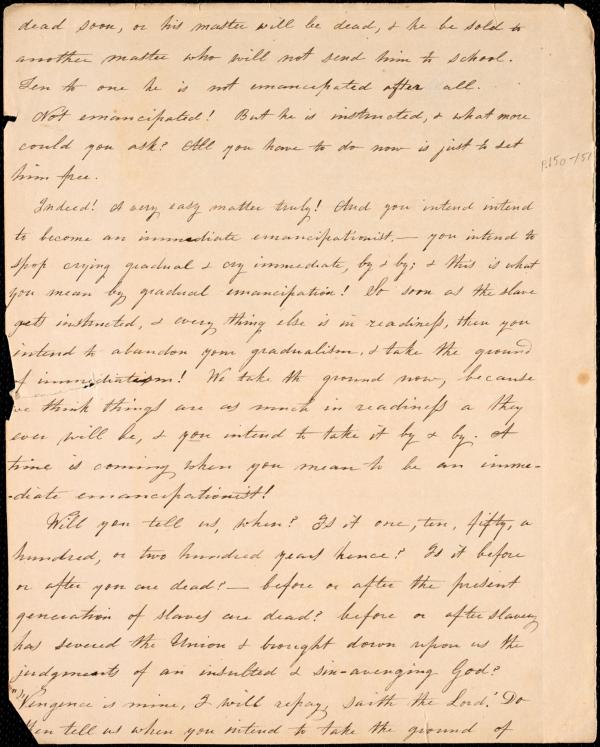 dead soon, or his master will be dead, & he be sold to
another master who will not send him to school.
Ten to one he is not emancipated after all.
Not emancipated! But he is instructed, & what more
could you ask? All you have to do now is just to set
him free.
P.150-151
Indeed! A very easy matter truly! And you intend intend
to become an immediate emancipationist,— you intend to
stop crying gradual & cry immediate, by & by; & this is what
you mean by gradual emancipation! So soon as the slave
gets instructed, & every thing else is in readiness, then you
intend to abandon your gradualism, & take the ground
of immediatism! We take th ground now, because
we think things are as much in readiness a they
ever will be, & you intend to take it by & by. A
time is coming when you mean to be an imme-
-diate emancipationist!
Will you tell us, when? Is it one, ten, fifty, a
hundred, or two hundred years hence? Is it before
or after you are dead?— before or after the present
generation of slaves are dead? before or after slavery
has severed the Union & brought down upon us the
judgments of an insulted & sin-avenging God?
"Vengence is mine, I will repay, saith the Lord." Do
then tell us when you intend to take the ground of